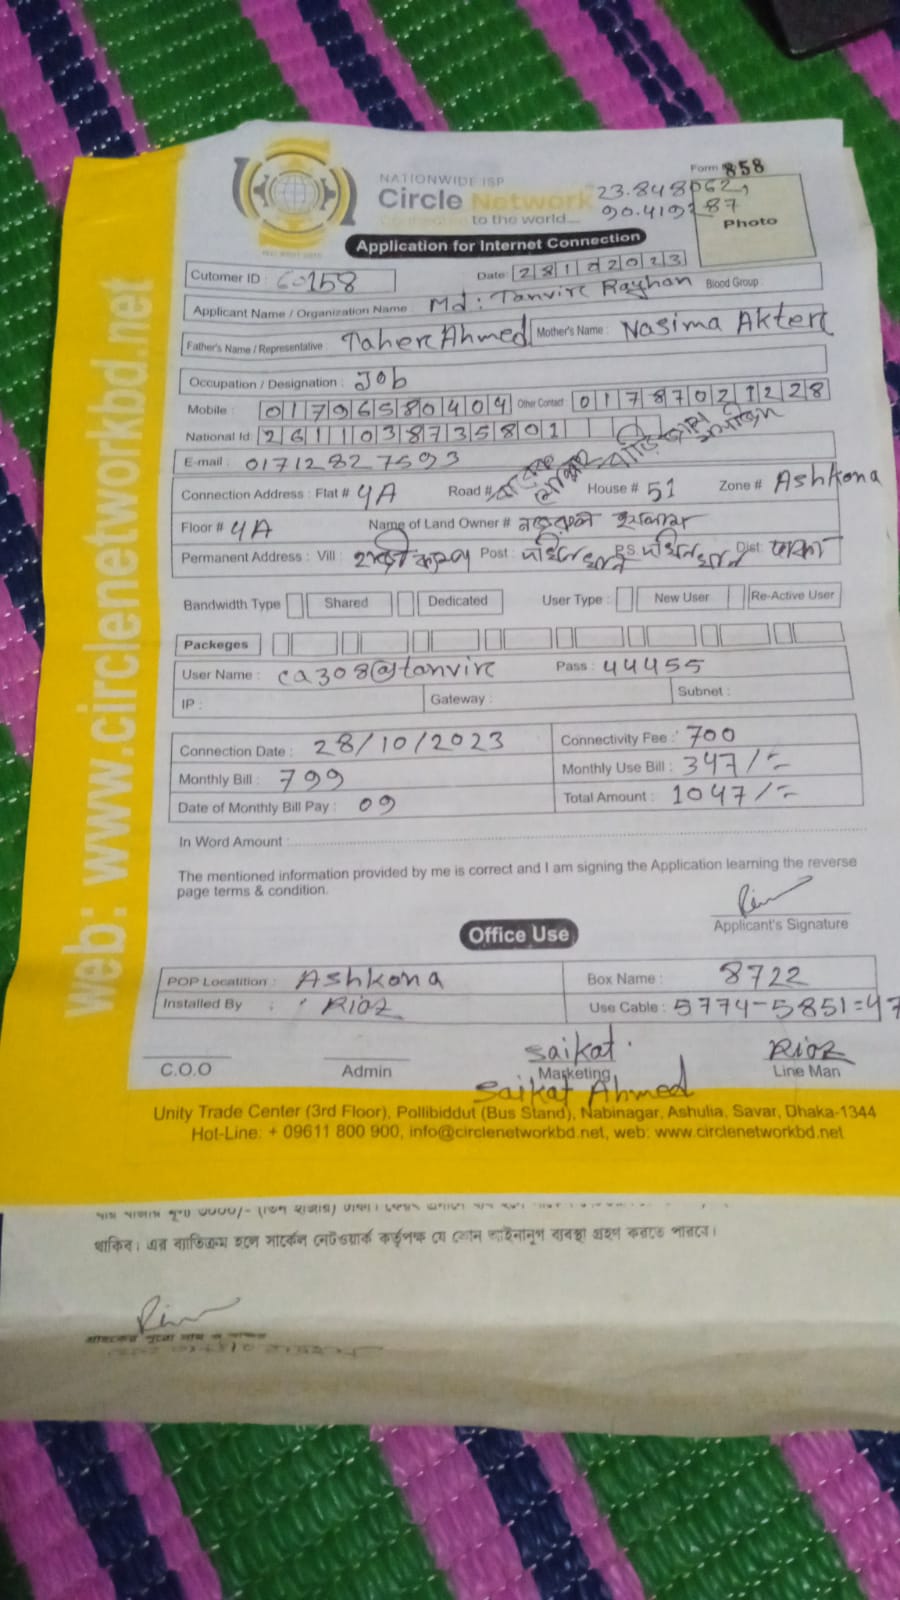 Form 858
NATIONWIDE ISP
Circle Network
Connecting to the world...
23.848062,
90.419287
Photo
Application for Internet Connection
Cutomer ID : 60158
Date: 28102023
Applicant Name / Organization Name : Md: Tanvire Rayhan Blood Group :
Father's Name / Representative : Taher Ahmed Mother's Name : Nasima Akter
Occupation / Designation : Job
Mobile : 01796580404 Other Contact : 01787021228
National Id: 2611038735801
E-mail : 01712827593
Connection Address : Flat # 4A Road # House # 51 Zone # Ashkona
Floor # 4A Name of Land Owner # ইসলাম
Permanent Address : Vill : Post : দক্ষিনখান P.S: দক্ষিনখান Dist: ঢাকা
Bandwidth Type Shared Dedicated User Type : New User Re-Active User
Packeges
User Name : ca308@tanvire Pass : 44455
IP : Gateway : Subnet :
Connection Date : 28/10/2023 Connectivity Fee : 700
Monthly Bill : 799 Monthly Use Bill : 347/=
Date of Monthly Bill Pay : 09 Total Amount : 1047/=
In Word Amount :
The mentioned information provided by me is correct and I am signing the Application learning the reverse
page terms & condition.
Applicant's Signature
Office Use
POP Locatition : Ashkona Box Name : 8722
Installed By : Rioz Use Cable : 5774-5851=47
Saikat Rioz
C.O.O Admin Marketing Line Man
Saikat Ahmed
Unity Trade Center (3rd Floor), Pollibiddut (Bus Stand), Nabinagar, Ashulia, Savar, Dhaka-1344
Hot-Line: + 09611 800 900, info@circlenetworkbd.net, web: www.circlenetworkbd.net
web: www.circlenetworkbd.net
থাকিব। এর ব্যতিক্রম হলে সার্কেল নেটওয়ার্ক কর্তৃপক্ষ যে কোন আইনানুগ ব্যবস্থা গ্রহণ করতে পারবে।